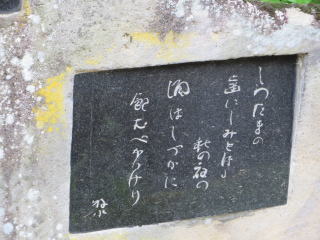 しらたまの
歯にしみとほる
秋の夜の
酒はしづかに
飲むべかりけり
牧水